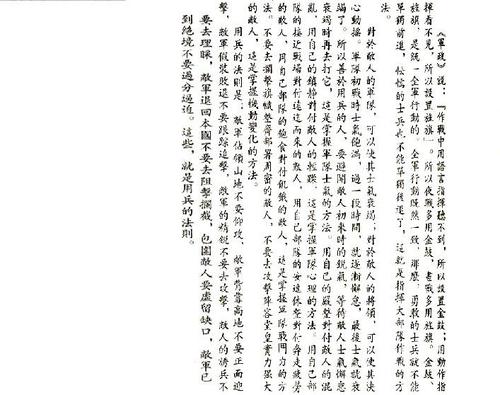 《軍政》說：「作戰中用語言指揮聽不到，所以設置金鼓；用動作指
揮看不見，所以設置旌旗」。所以夜戰多用金鼓，晝戰多用旌旗。金鼓、
旌旗，是統一全軍行動的。全軍行動既然一致，那麼，勇敢的士兵就不能
單獨前進，怯懦的士兵也不能單獨後退了，這就是指揮大部隊作戰的方
法。
對於敵人的軍隊，可以使其士氣衰竭；對於敵人的將領，可以使其決
心動搖。軍隊初戰時士氣飽滿，過一段時間，就逐漸懈怠，最後士氣就衰
竭了。所以善於用兵的人，要避開敵人初來時的銳氣，等待敵人士氣懈怠
衰竭時再去打它，這是掌握軍隊士氣的方法。用自己的嚴整對付敵人的混
亂，用自己的鎮靜對付敵人的輕躁，這是掌握軍隊心理的方法。用自己部
隊的接近戰場對付遠道而來的敵人，用自己部隊的安逸休整對付奔走疲勞
的敵人，用自己部隊的飽食對付飢餓的敵人，這是掌握軍隊戰鬥力的方
法。不要去攔擊旗幟整齊部署周密的敵人，不要去攻擊陣容堂皇實力強大
的敵人，這是掌握機動變化的方法。
用兵的法則是：敵軍佔領山地不要仰攻，敵軍背靠高地不要正面迎
擊，敵軍假裝敗退不要跟蹤追擊，敵軍的精銳不要去攻擊，敵人的誘兵不
要去理睬，敵軍退回本國不要去阻擊攔截，包圍敵人要虛留缺口，敵軍已
到絕境不要過分逼迫。這些，就是用兵的法則。